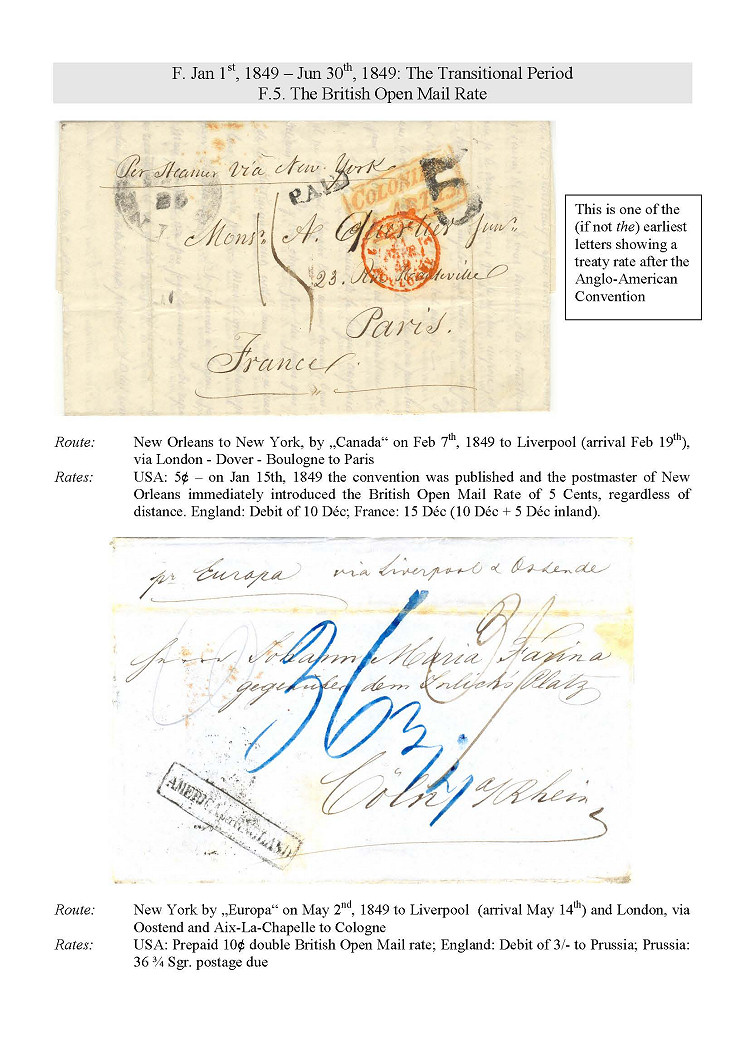 F. Jan 1st, 1849 – Jun 30th, 1849: The Transitional Period
F.5. The British Open Mail Rate
Per Steamer via New-York
PAID
COLONIES
5
Monsr A. Quertier Junr
23.
Paris.
France
This is one of the
(if not the) earliest
letters showing a
treaty rate after the
Anglo-American
Convention
Route: New Orleans to New York, by „Canada“ on Feb 7th, 1849 to Liverpool (arrival Feb 19th),
via London - Dover - Boulogne to Paris
Rates: USA: 5¢ – on Jan 15th, 1849 the convention was published and the postmaster of New
Orleans immediately introduced the British Open Mail Rate of 5 Cents, regardless of
distance. England: Debit of 10 Déc; France: 15 Déc (10 Déc + 5 Déc inland).
pr Europa via Liverpool & Ostende
Herrn Johann Maria Farina
gegenüber dem Jülichs Platz
36 3/4
Cöln a/Rhein
AMERICA per ENGLAND
Route: New York by „Europa“ on May 2nd, 1849 to Liverpool (arrival May 14th) and London, via
Oostend and Aix-La-Chapelle to Cologne
Rates: USA: Prepaid 10¢ double British Open Mail rate; England: Debit of 3/- to Prussia; Prussia:
36 ¾ Sgr. postage due